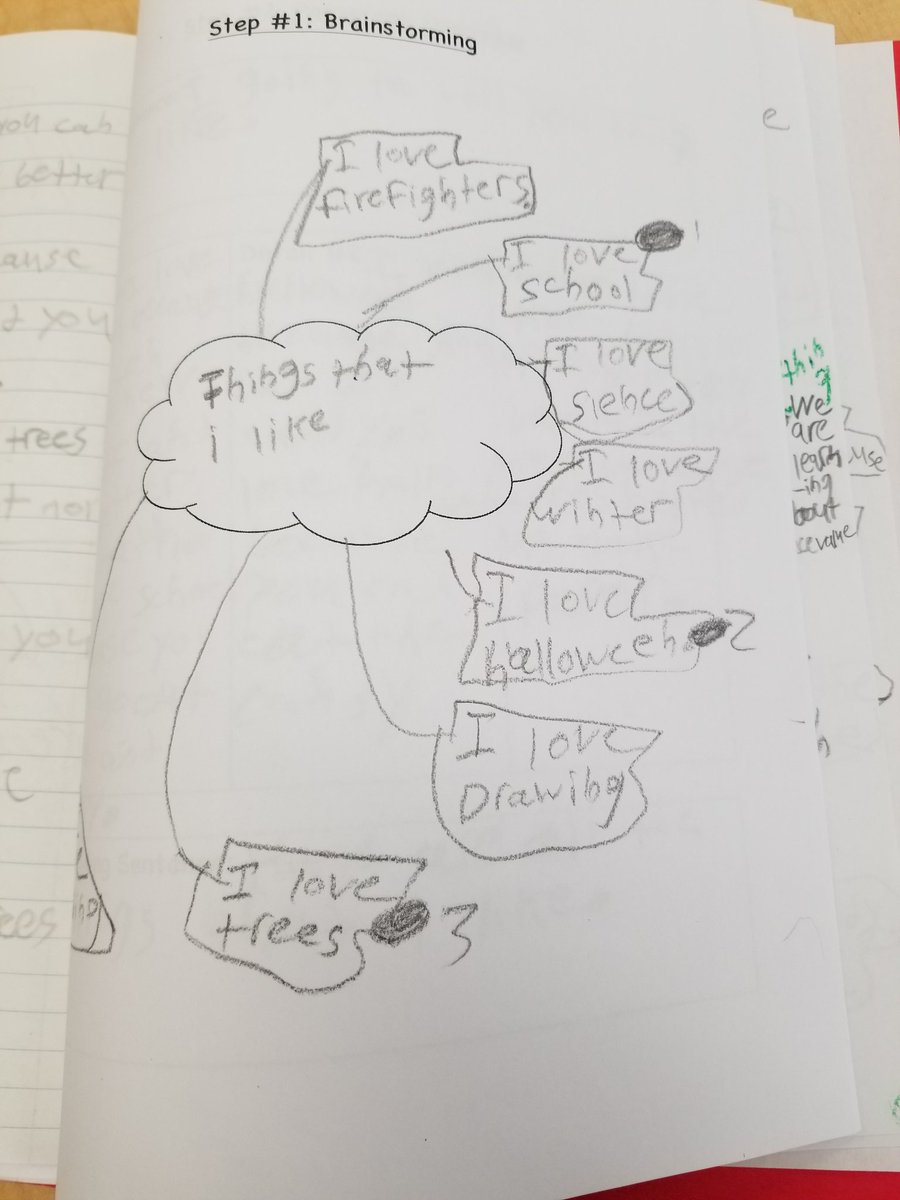 Step #1: Brainstorming
I love
firefighters.
1
I love
school
Things that
i like
I love
sience
I love
winter
I love
halloween.
2
I love
Drawing
I love
trees
3
you can
better
ause
you
trees
you
c
ees
e
thin
g
we
are
learn
-ing
bout
use